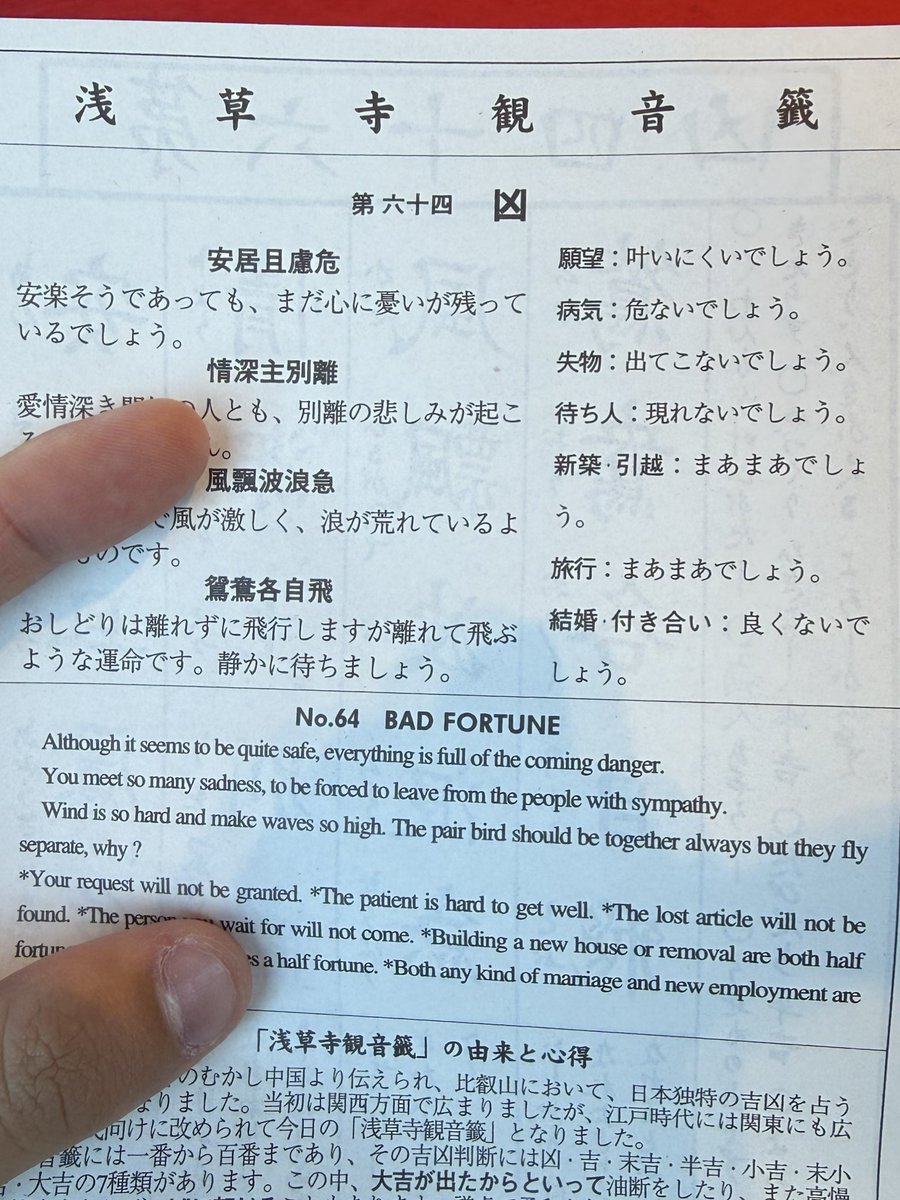 浅草寺観音籤
第六十四 凶
安居且慮危
安楽そうであっても、まだ心に憂いが残って
いるでしょう。
情深主別離
愛情深き 人とも、別離の悲しみが起こ
風飄波浪急
風が激しく、浪が荒れているよ
のです。
鴛鴦各自飛
おしどりは離れずに飛行しますが離れて飛ぶ
ような運命です。静かに待ちましょう。
願望：叶いにくいでしょう。
病気：危ないでしょう。
失物：出てこないでしょう。
待ち人：現れないでしょう。
新築・引越：まあまあでしょ
う。
旅行：まあまあでしょう。
結婚・付き合い：良くないで
しょう。
No.64 BAD FORTUNE
Although it seems to be quite safe, everything is full of the coming danger.
You meet so many sadness, to be forced to leave from the people with sympathy.
Wind is so hard and make waves so high. The pair bird should be together always but they fly
separate, why ?
*Your request will not be granted. *The patient is hard to get well. *The lost article will not be
found. *The person you wait for will not come. *Building a new house or removal are both half
a half fortune. *Both any kind of marriage and new employment are
「浅草寺観音籤」の由来と心得
のむかし中国より伝えられ、比叡山において、日本独特の吉凶を占う
なりました。当初は関西方面で広まりましたが、江戸時代には関東にも広
向けに改められて今日の「浅草寺観音籤」となりました。
音籤には一番から百番まであり、その吉凶判断には凶・吉・末吉・半吉・小吉・末小
・大吉の7種類があります。この中、大吉が出たからといって油断をしたり、また高慢